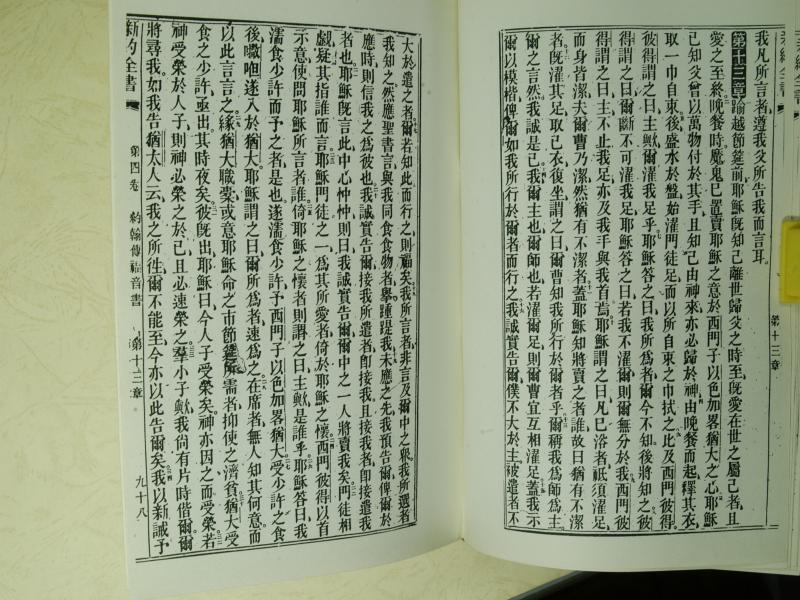 我凡所言者遵我父所告我而言耳
第十三章論越節筵前耶穌旣知己離世歸父之時至旣愛在世之屬己者且
愛之至終晚餐時魔鬼已置賣耶穌之意於西門子以色加畧猶大之心耶穌
已知父曾以萬物付於其手且知己由神來亦必歸於神由晚餐而起釋其衣
取一巾自束後盛水於盤始濯門徒足而以所自束之巾拭之比及西門彼得
彼得謂之曰主歟爾濯我足乎耶穌答之曰我所爲者爾今不知後將知之彼
得謂之曰爾斷不可濯我足耶穌答之曰若我不濯爾則爾無分於我西門彼
得謂之曰主不止我足亦及我手與我首焉耶穌謂之曰凡已浴者祇須濯足
而身皆潔夫爾曹乃潔然猶有不潔者蓋耶穌知將賣之者誰故曰猶有不潔
者旣濯其足取己衣復坐謂之曰爾曹知我所行於爾者乎爾稱我爲師爲主
爾之言然我誠是已我爾主也爾師也若濯爾足則爾曹宜互相濯足蓋我示
爾以模楷俾爾如我所行於爾者而行之我誠實告爾僕不大於主被遣者不
第十三章
大於遣之者爾若知此而行之則福矣我所言者非言及爾中之衆我所選者
我知之然應聖書言與我同食食物者舉踵踶我未應之先我預告爾俾爾於
應時則信我之爲彼也我誠實告爾接我所遣者卽接我且接我者卽接遣我
者也耶穌旣言此中心忡忡則曰我誠實告爾爾中之一人將賣我矣門徒相
覷疑其指誰而言耶穌門徒之一爲其所愛者倚於耶穌之懷西門彼得以首
示意使問耶穌所言者誰倚耶穌之懷者則謂之曰主歟是誰乎耶穌答曰我
濡食少許而予之者是也遂濡食少許予西門子以色加畧猶大受少許之食
後𠾐呾遂入於猶大耶穌謂之曰爾所爲者速爲之在席者無人知其何意而
以此言言之緣猶大職橐或意耶穌命之市節筵所需者抑使之濟貧猶大受
食之少許亟出其時夜矣彼旣出耶穌曰今人子受榮矣神亦因之而受榮若
神受榮於人子則神必榮之於己且必速榮之羣小子歟我尙有片時偕爾爾
將尋我如我告猶太人云我之所徃爾不能至今亦以此告爾矣我以新誡予
新約全書
第四卷
約翰傳福音書
第十三章
九十八